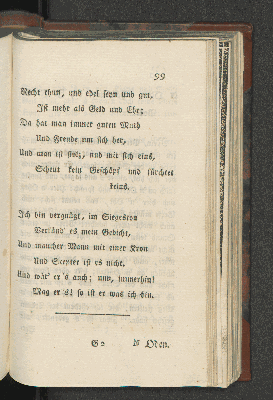 99
Recht thun, und edel seyn und gut,
Ist mehr als Geld und Ehr;
Da hat man immer guten Muth
Und Freude um sich her,
Und man ist stolz, und mit sich eins,
Scheut kein Geschöpf und fürchtet
keins.
Ich bin vergnügt, im Siegeston
Verkünd' es mein Gedicht,
Und mancher Mann mit einer Kron
Und Scepter ist es nicht.
Und wär' er's auch; nun, immerhin!
Mag er's! so ist er was ich bin.
G 2 Oden.